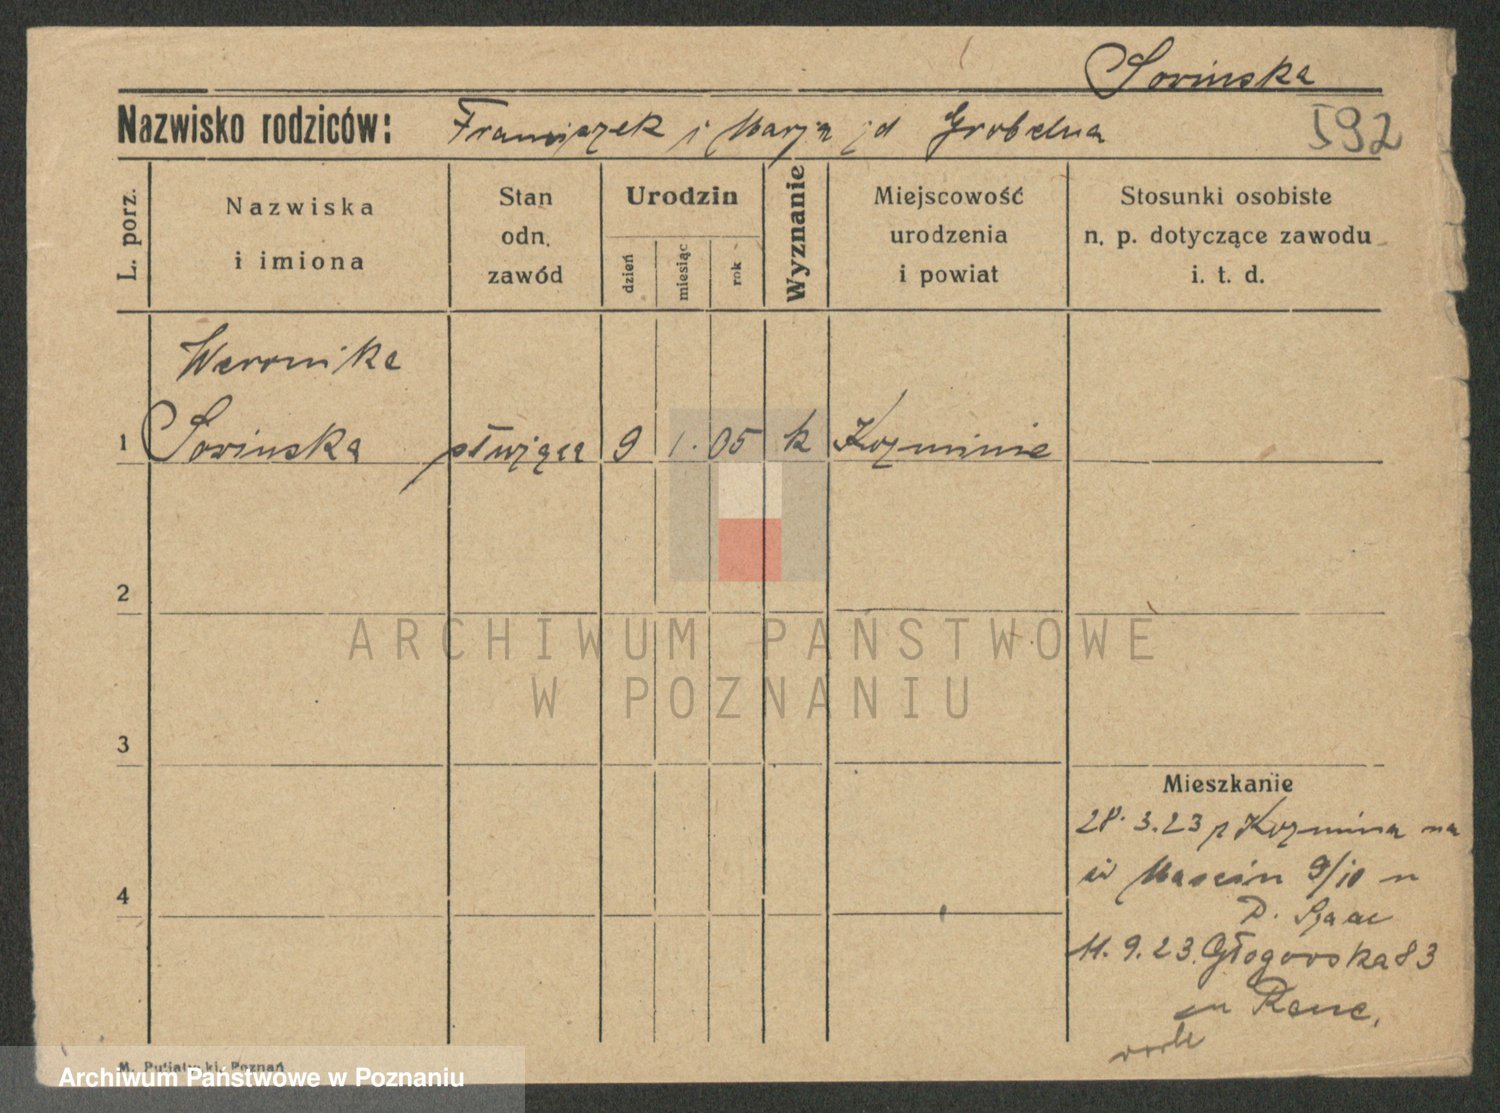 Sowinska
Nazwisko rodziców: Franciszek i Marja zd Grobelna
592
L. porz.
Nazwiska
i imiona
Stan
odn.
zawód
Urodzin
dzień
miesiąc
rok
Wyznanie
Miejscowość
urodzenia
i powiat
Stosunki osobiste
n. p. dotyczące zawodu
i. t. d.
Weronika
1 Sowinska służąca 9 1. 05 k Kozminie
2
ARCHIWUM PAŃSTWOWE
W POZNANIU
3
Mieszkanie
28. 3. 23 z Kozmina na
św Marcin 9/10 u
4
P.
11. 9. 23. Głogowska 83
u
M. Putiatycki, Poznań
Archiwum Państwowe w Poznaniu